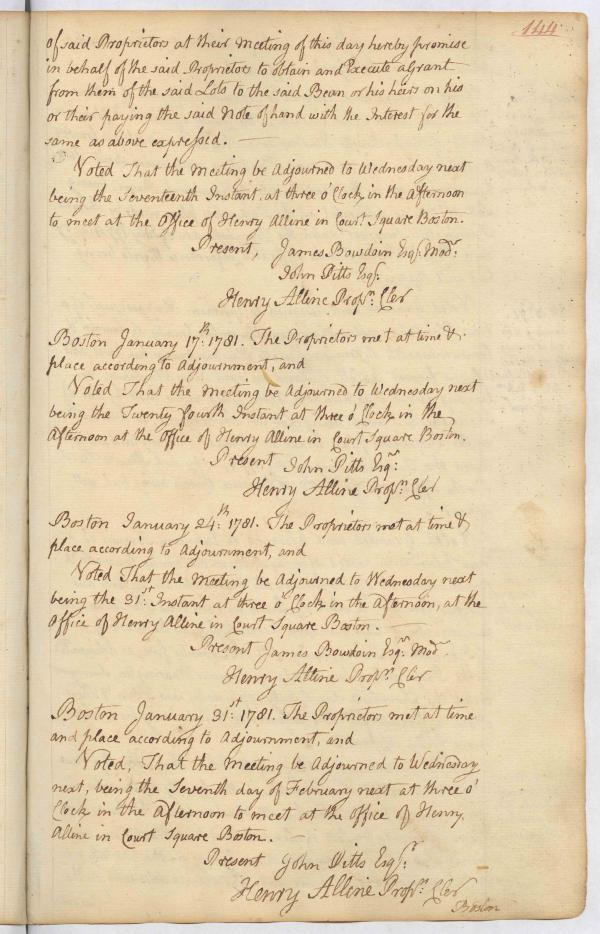 144
of said Proprietors at their meeting of this day hereby promise
in behalf of the said Proprietors to obtain and Execute a Grant
from them of the said Lots to the said Bean or his heirs on his
or their paying the said Note of hand with the Interest for the
same as above expressed. —
Voted That the meeting be Adjourned to Wednesday next
being the Seventeenth Instant, at three o'Clock in the Afternoon
to meet at the Office of Henry Alline in Court Square Boston.
Present, James Bowdoin Esqr. Modr.
John Pitts Esqr.
Henry Alline Proprs. Cler
Boston January 17th. 1781. The Proprietors met at time &
place according to Adjournment, and
Voted That the meeting be Adjourned to Wednesday next
being the Twenty fourth Instant at three o'Clock in the
Afternoon at the Office of Henry Alline in Court Square Boston.
Present John Pitts Esqr.
Henry Alline Proprs. Cler
Boston January 24th. 1781. The Proprietors met at time &
place according to Adjournment, and
Voted That the meeting be Adjourned to Wednesday next
being the 31st. Instant at three o'Clock in the Afternoon, at the
Office of Henry Alline in Court Square Boston. —
Present James Bowdoin Esqr. Modr.
Henry Alline Proprs. Cler
Boston January 31st. 1781. The Proprietors met at time
and place according to Adjournment, and
Voted, That the meeting be Adjourned to Wednesday
next, being the Seventh day of February next at three o'
Clock in the Afternoon to meet at the Office of Henry
Alline in Court Square Boston. —
Present John Pitts Esqr.
Henry Alline Proprs. Cler
Boston